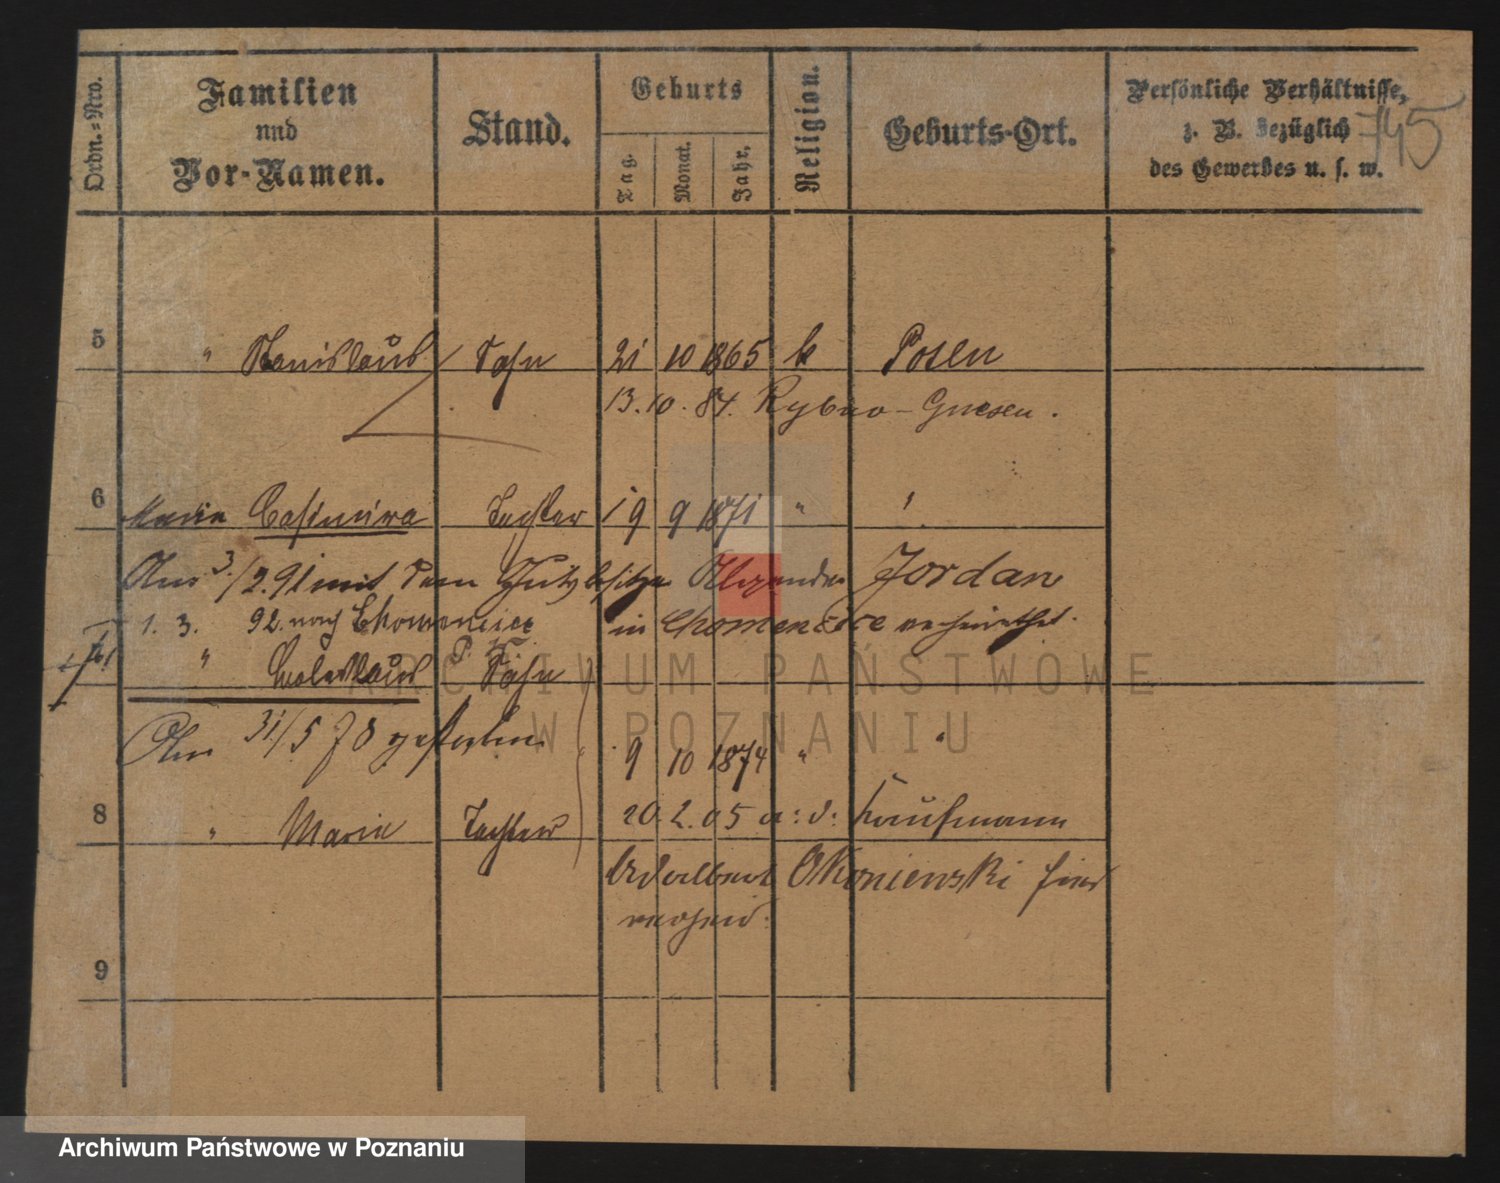 Ordn.=Nro.
Familien
und
Vor-Namen.
Stand.
Geburts
Tag.
Monat.
Jahr.
Religion.
Geburts-Ort.
Persönliche Verhältnisse,
z. B. bezüglich
des Gewerbes u. s. w.
745
5 " Stanislaus Sohn 21 10 1865 k Posen
13. 10. 84. Rybno - Gnesen.
6 Maria Casimira Tochter 19 9 1871 " "
Am 3./2. 91 mit dem Gutsbesitzer Alexander Jordan
1. 3. 92. nach Chomencice in Chomencice verheirathet.
" Boleslaus Sohn
Am 31/5 78 gestorben
9 10 1874 " "
8 " Maria Tochter 20. 2. 05 a: d: Kaufmann
Adalbert Okoniewski hier
verheir:
9
ARCHIWUM PAŃSTWOWE
W POZNANIU
Archiwum Państwowe w Poznaniu